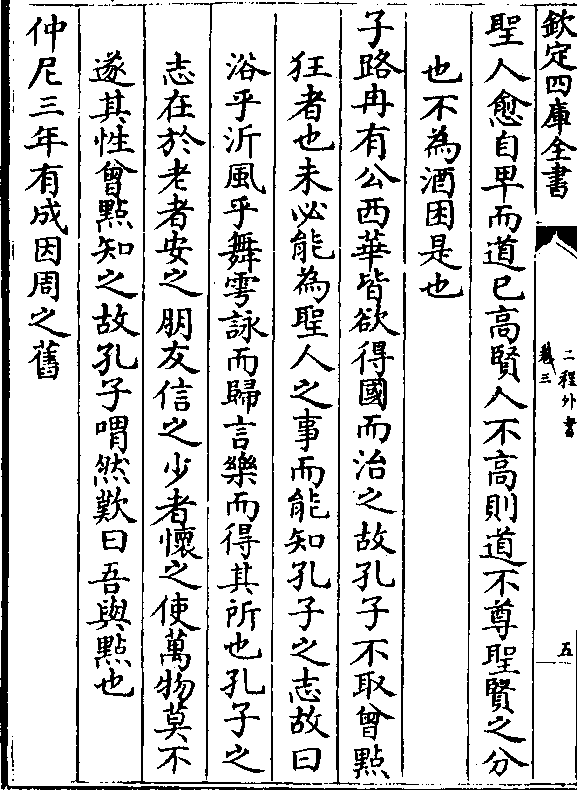 欽定四庫全書
二程外書
卷三
五
聖人愈自卑而道已高賢人不高則道不尊聖賢之分
也不為酒困是也
子路冉有公西華皆欲得國而治之故孔子不取曾點
狂者也未必能為聖人之事而能知孔子之志故曰
浴乎沂風乎舞雩詠而歸言樂而得其所也孔子之
志在於老者安之朋友信之少者懷之使萬物莫不
遂其性曾點知之故孔子喟然歎曰吾與點也
仲尼三年有成因周之舊